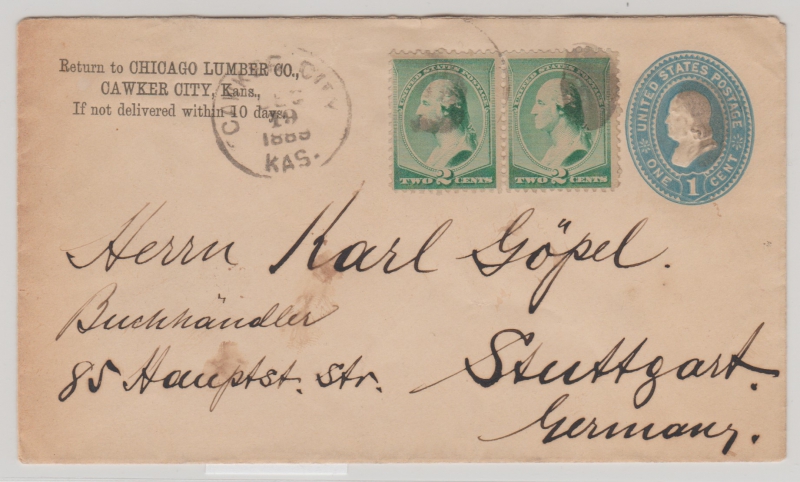 Return to CHICAGO LUMBER CO.,
CAWKER CITY, Kans.,
If not delivered within 10 days.
CAWKER CITY
19
1889
KAS.
UNITED STATES POSTAGE
TWO 2 CENTS
UNITED STATES POSTAGE
TWO 2 CENTS
UNITED STATES POSTAGE
ONE 1 CENT
Herrn Karl Göpel.
Buchhändler
85 Hauptst. Str.
Stuttgart.
Germany.